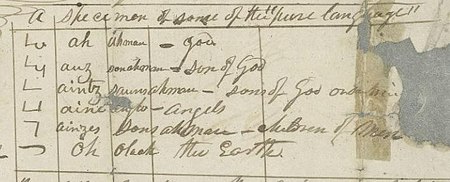 A Specimen of some of the "pure language"
ah ahman - god
auz sonahman - Son of God
aintz saunsahman - sons of God
aine anglo - angels
ainzes Sonsahman - children of Men
oh oleah the Earth